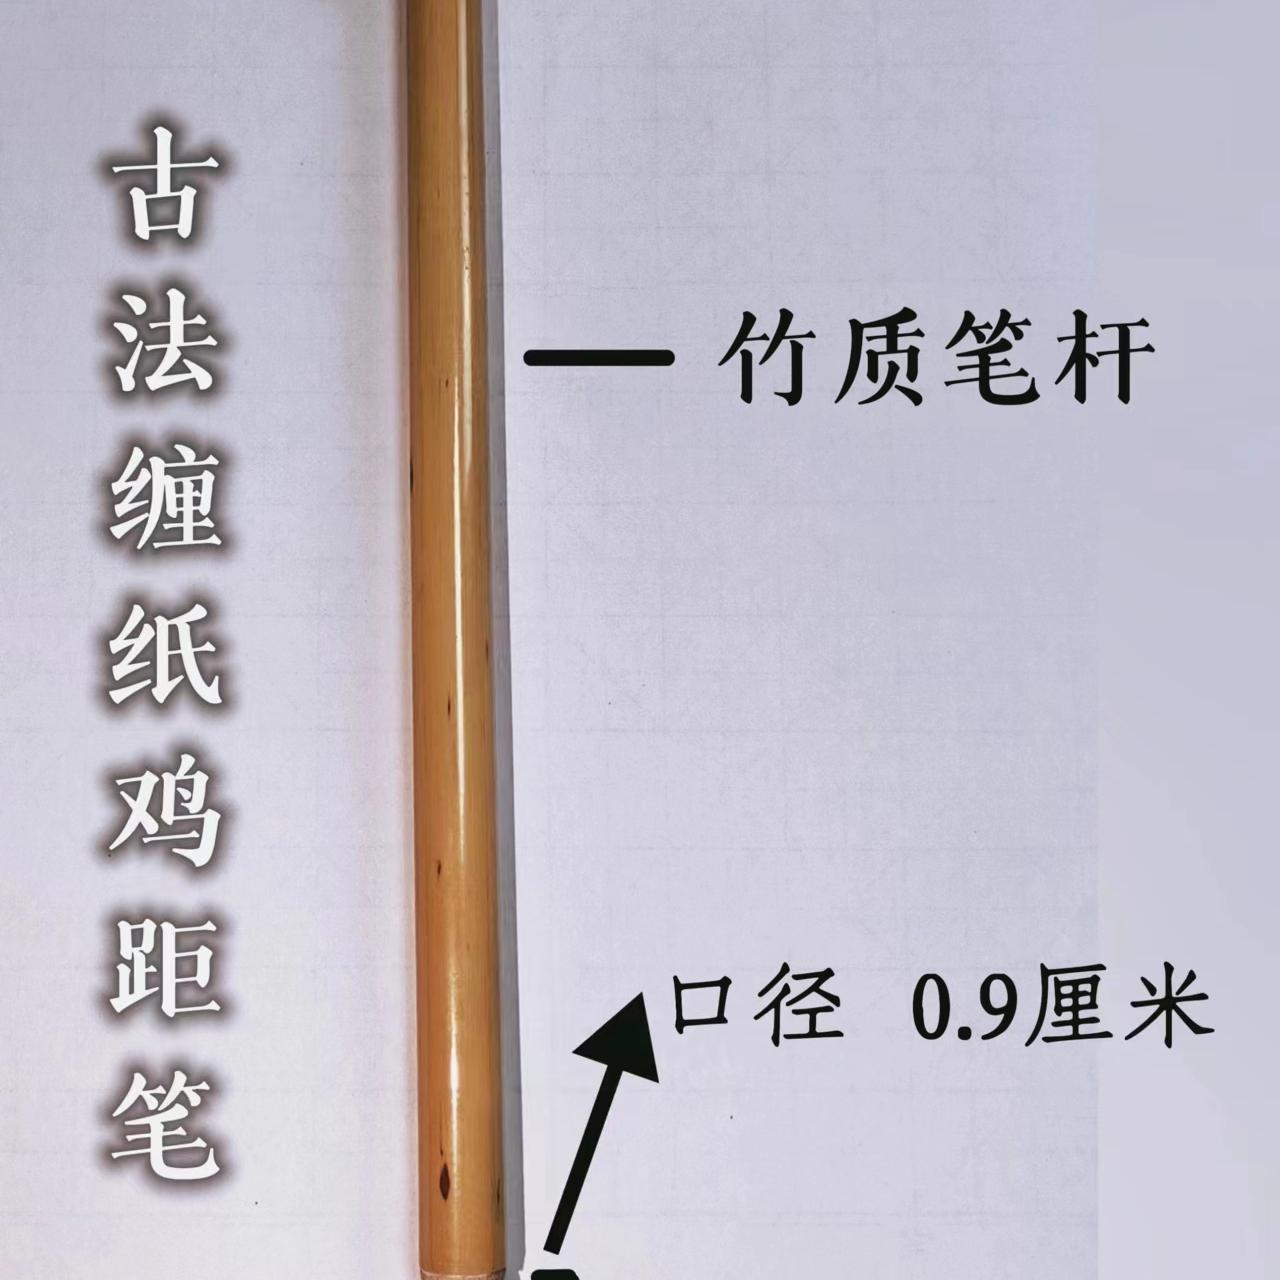 古法缠纸鸡距笔
竹质笔杆
口径 0.9厘米